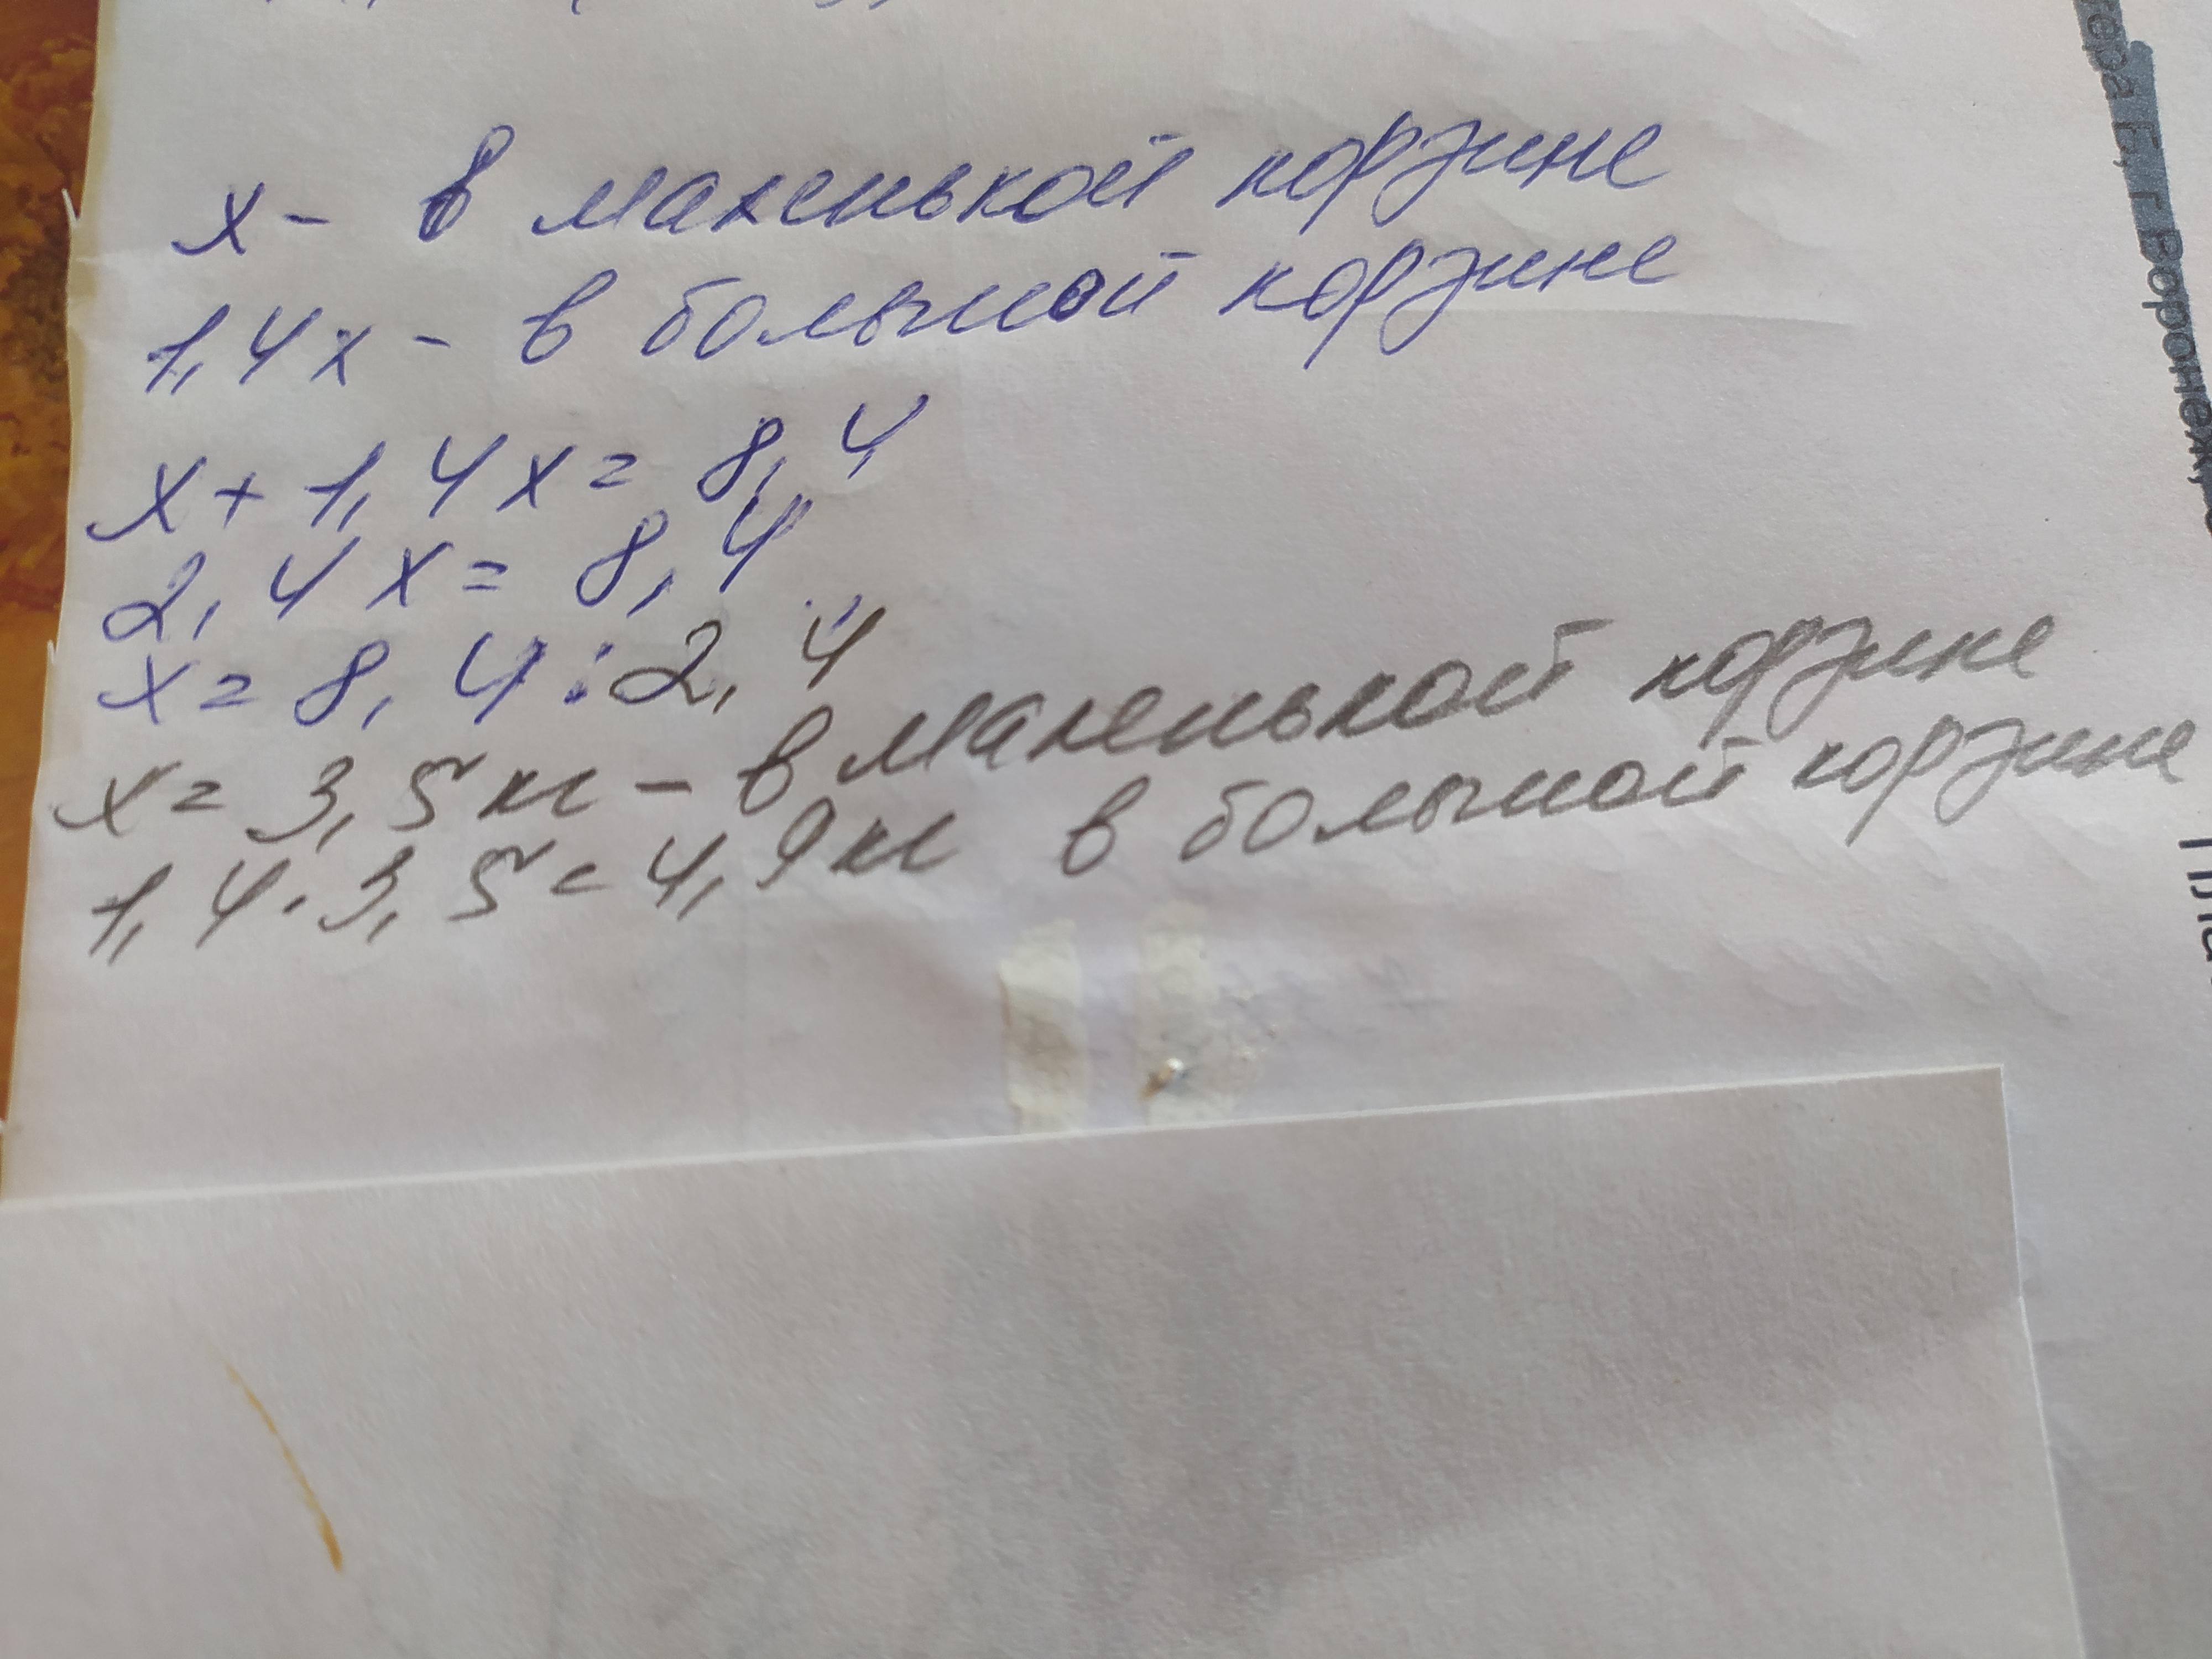 x - в маленькой корзине
1,4x - в большой корзине
x + 1,4x = 8,4
2,4x = 8,4
x = 8,4 : 2,4
x = 3,5 кг - в маленькой корзине
1,4 · 3,5 = 4,9 кг в большой корзине
г Воронеж,